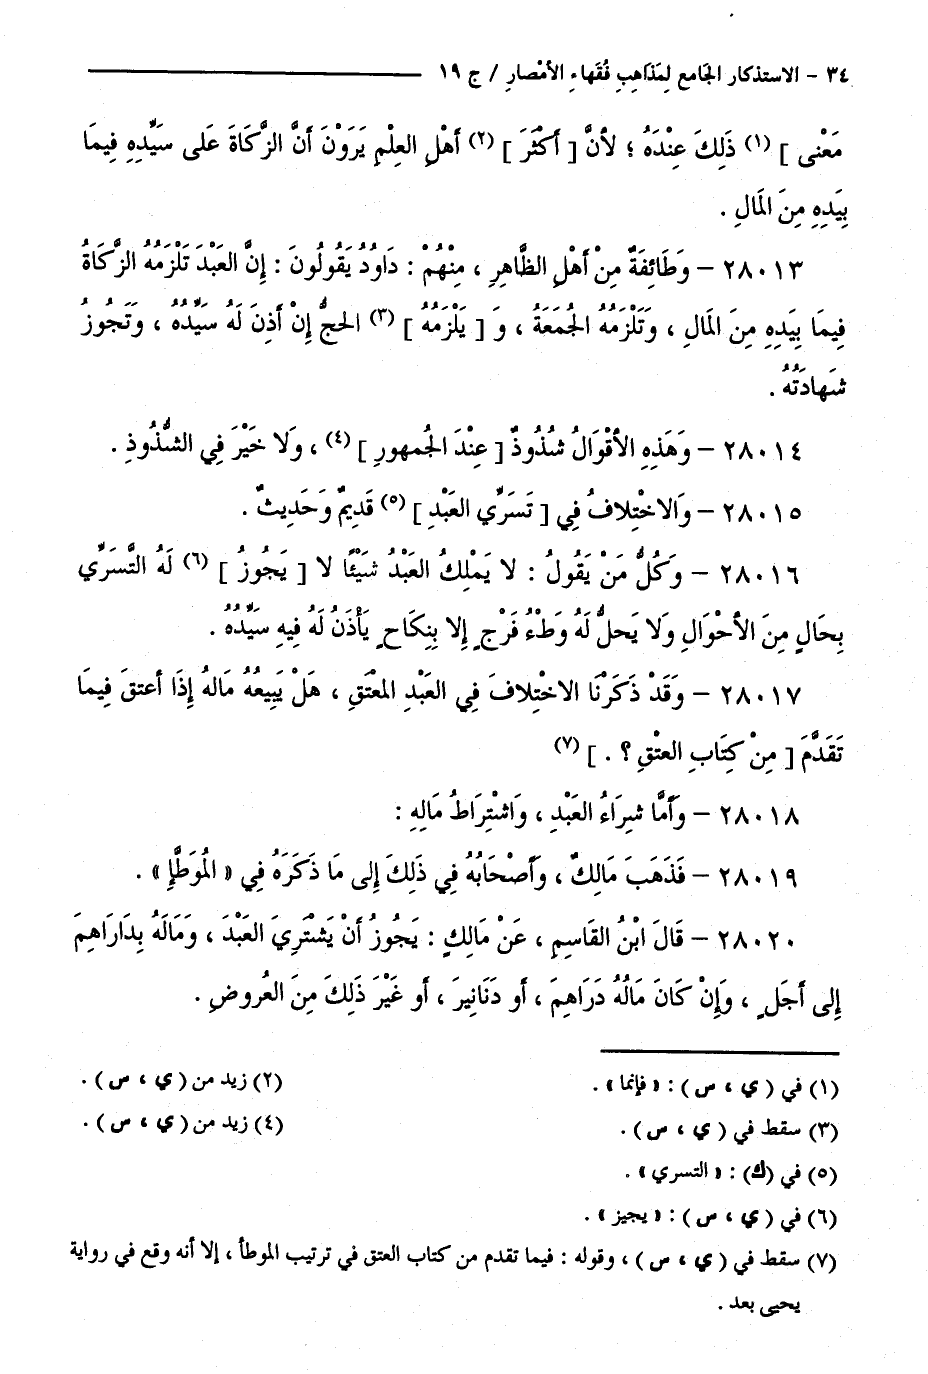 ٣٤ - الاستذكار الجَامع لِمَذَاهِبِ فُقَهاءِ الأمْصارِ / ج ١٩
مَعْنى ] (١) ذَلِكَ عِنْدَهُ ؛ لأنَّ [ أكْثَرَ ] (٢) أهْلِ العِلْمِ يَرَوْنَ أنَّ الزَّكَاةَ عَلى سَيِّدِهِ فِيمَا
بِيَدِهِ مِنَ المَالِ .
٢٨٠١٣ - وَطَائِفَةٌ مِنْ أهْلِ الظَّاهِرِ ، مِنْهُمْ : دَاوُدُ يَقُولُونَ : إِنَّ العَبْدَ تَلْزَمُهُ الزَّكَاةُ
فِيمَا بِيَدِهِ مِنَ المَالِ ، وَتَلْزَمُهُ الجُمَعَةُ ، وَ [ يَلْزَمُهُ ] (٣) الحَجُّ إِنْ أذِنَ لَهُ سَيِّدُهُ ، وَتَجُوزُ
شَهادَتُهُ .
٢٨٠١٤ - وَهَذِهِ الأقْوَالُ شُذُوذٌ [ عِنْدَ الجُمهورِ ] (٤) ، وَلا خَيْرَ فِي الشُّذُوذِ .
٢٨٠١٥ - وَالاخْتِلافُ فِي [ تَسَرِّي العَبْدِ ] (٥) قَدِيمٌ وَحَدِيثٌ .
٢٨٠١٦ - وَكُلُّ مَنْ يَقُولُ : لا يَمْلِكُ العَبْدُ شَيْئًا لا [ يَجُوزُ ] (٦) لَهُ التَّسَرِّي
بِحَالٍ مِنَ الأحْوَالِ وَلا يَحلُّ لَهُ وَطْءُ فَرْجٍ إِلا بِنِكَاحٍ يَأْذَنُ لَهُ فِيهِ سَيِّدُهُ .
٢٨٠١٧ - وَقَدْ ذَكَرْنَا الاخْتِلافَ فِي العَبْدِ المعْتَقِ ، هَلْ يَبِيعُهُ مَالهُ إِذَا أعتقَ فِيمَا
تَقَدَّمَ [ مِنْ كِتَابِ العتْقِ ؟ . ] (٧)
٢٨٠١٨ - وَأَمَّا شِرَاءُ العَبْدِ ، وَاشْتِرَاطُ مَالِهِ :
٢٨٠١٩ - فَذَهَبَ مَالِكٌ ، وَأَصْحَابُهُ فِي ذَلِكَ إِلى مَا ذَكَرَهُ فِي « المُوَطَّإِ » .
٢٨٠٢٠ - قَالَ ابْنُ القَاسِمِ ، عَنْ مَالِكٍ : يَجُوزُ أَنْ يَشْتَرِيَ العَبْدَ ، وَمَالَهُ بِدَارَاهِمَ
إِلى أَجَلٍ ، وَإِنْ كَانَ مَالُهُ دَرَاهِمَ ، أو دَنَانِيرَ ، أو غَيْرَ ذَلِكَ مِنَ العُروضِ .
(١) في ( ي ، س ) : « فإنما » . (٢) زيد من ( ي ، س ) .
(٣) سقط في ( ي ، س ) . (٤) زيد من ( ي ، س ) .
(٥) في (ك) : « التسري » .
(٦) في ( ي ، س ) : « يجيز » .
(٧) سقط في ( ي ، س ) ، وقوله : فيما تقدم من كتاب العتق في ترتيب الموطأ ، إلا أنه وقع في رواية
يحيى بعد .